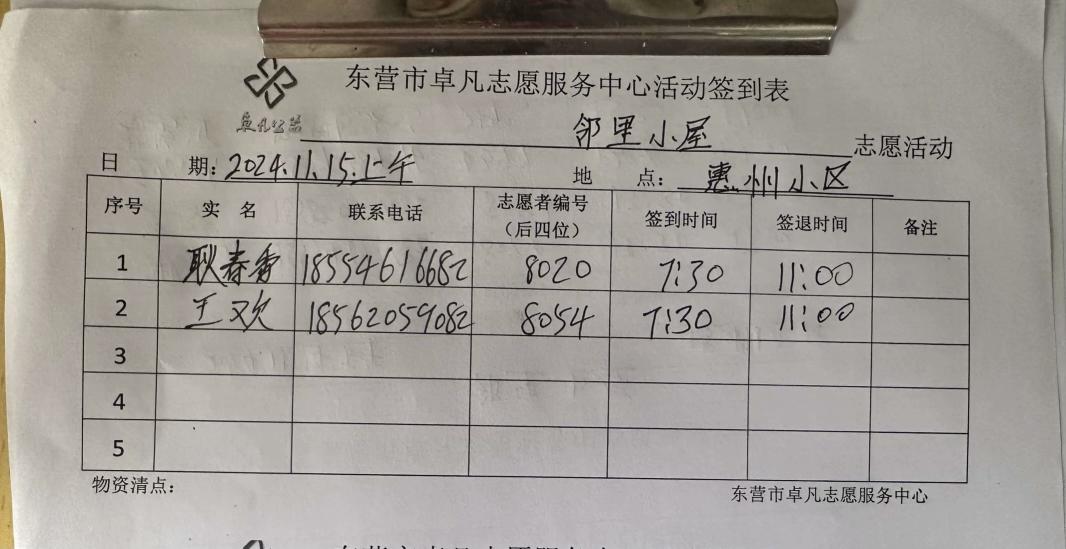 东营市卓凡志愿服务中心活动签到表
卓凡公益
邻里小屋 志愿活动
日 期：2024.11.15.上午 地 点：惠州小区
序号 实 名 联系电话 志愿者编号（后四位） 签到时间 签退时间 备注
1 耿春香 18554616682 8020 7:30 11:00
2 王欢 18562059082 8054 7:30 11:00
3
4
5
物资清点： 东营市卓凡志愿服务中心